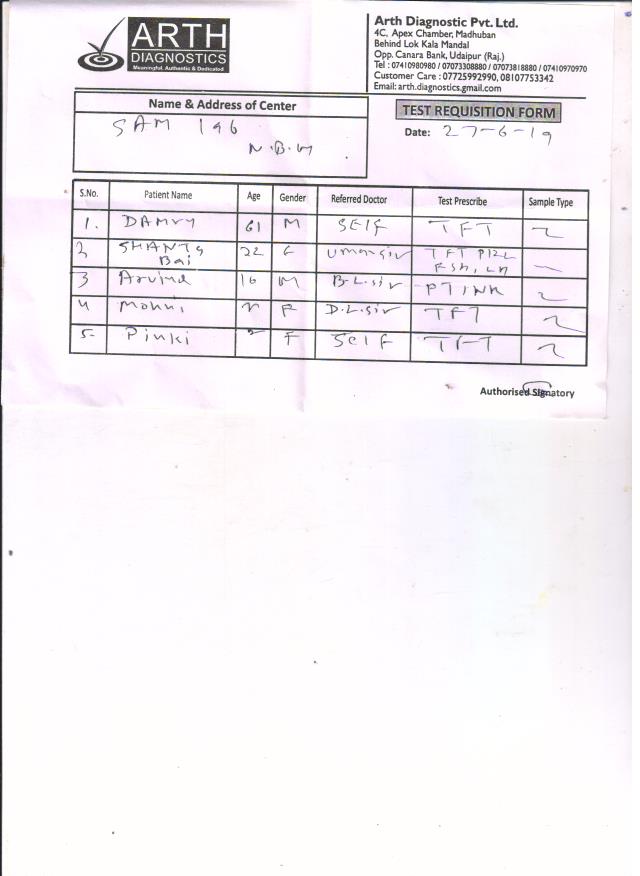 ARTH
DIAGNOSTICS
Meaningful, Authentic & Dedicated
Arth Diagnostic Pvt. Ltd.
4C, Apex Chamber, Madhuban
Behind Lok Kala Mandal
Opp. Canara Bank, Udaipur (Raj.)
Tel : 07410980980 / 07073308880 / 07073818880 / 07410970970
Customer Care : 07725992990, 08107753342
Email: arth.diagnostics.gmail.com
Name & Address of Center
SAM lab
N.B.H
TEST REQUISITION FORM
Date: 27-6-19
S.No. Patient Name Age Gender Referred Doctor Test Prescribe Sample Type
1. 61 M SELF TFT
2 SHANTS Bai 22 F Uman Sir TFT
FSH, LH
3 Arvind 16 M B.L.Sir PTINR
4 F D.L.Sir TFT
5- Pinki F Self TFT
Authorised Signatory